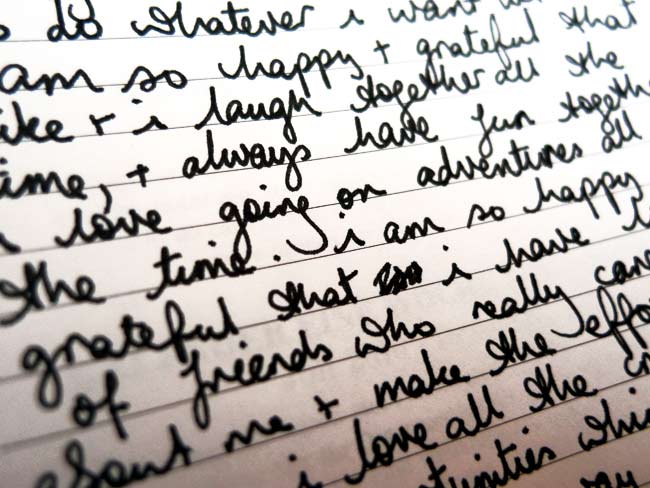 do whatever i want
am so happy + grateful that
+ i laugh together all the
time, + always have fun together
love going on adventures all
the time. i am so happy
grateful that i have
of friends who really care
about me + make the effort
i love all the
which